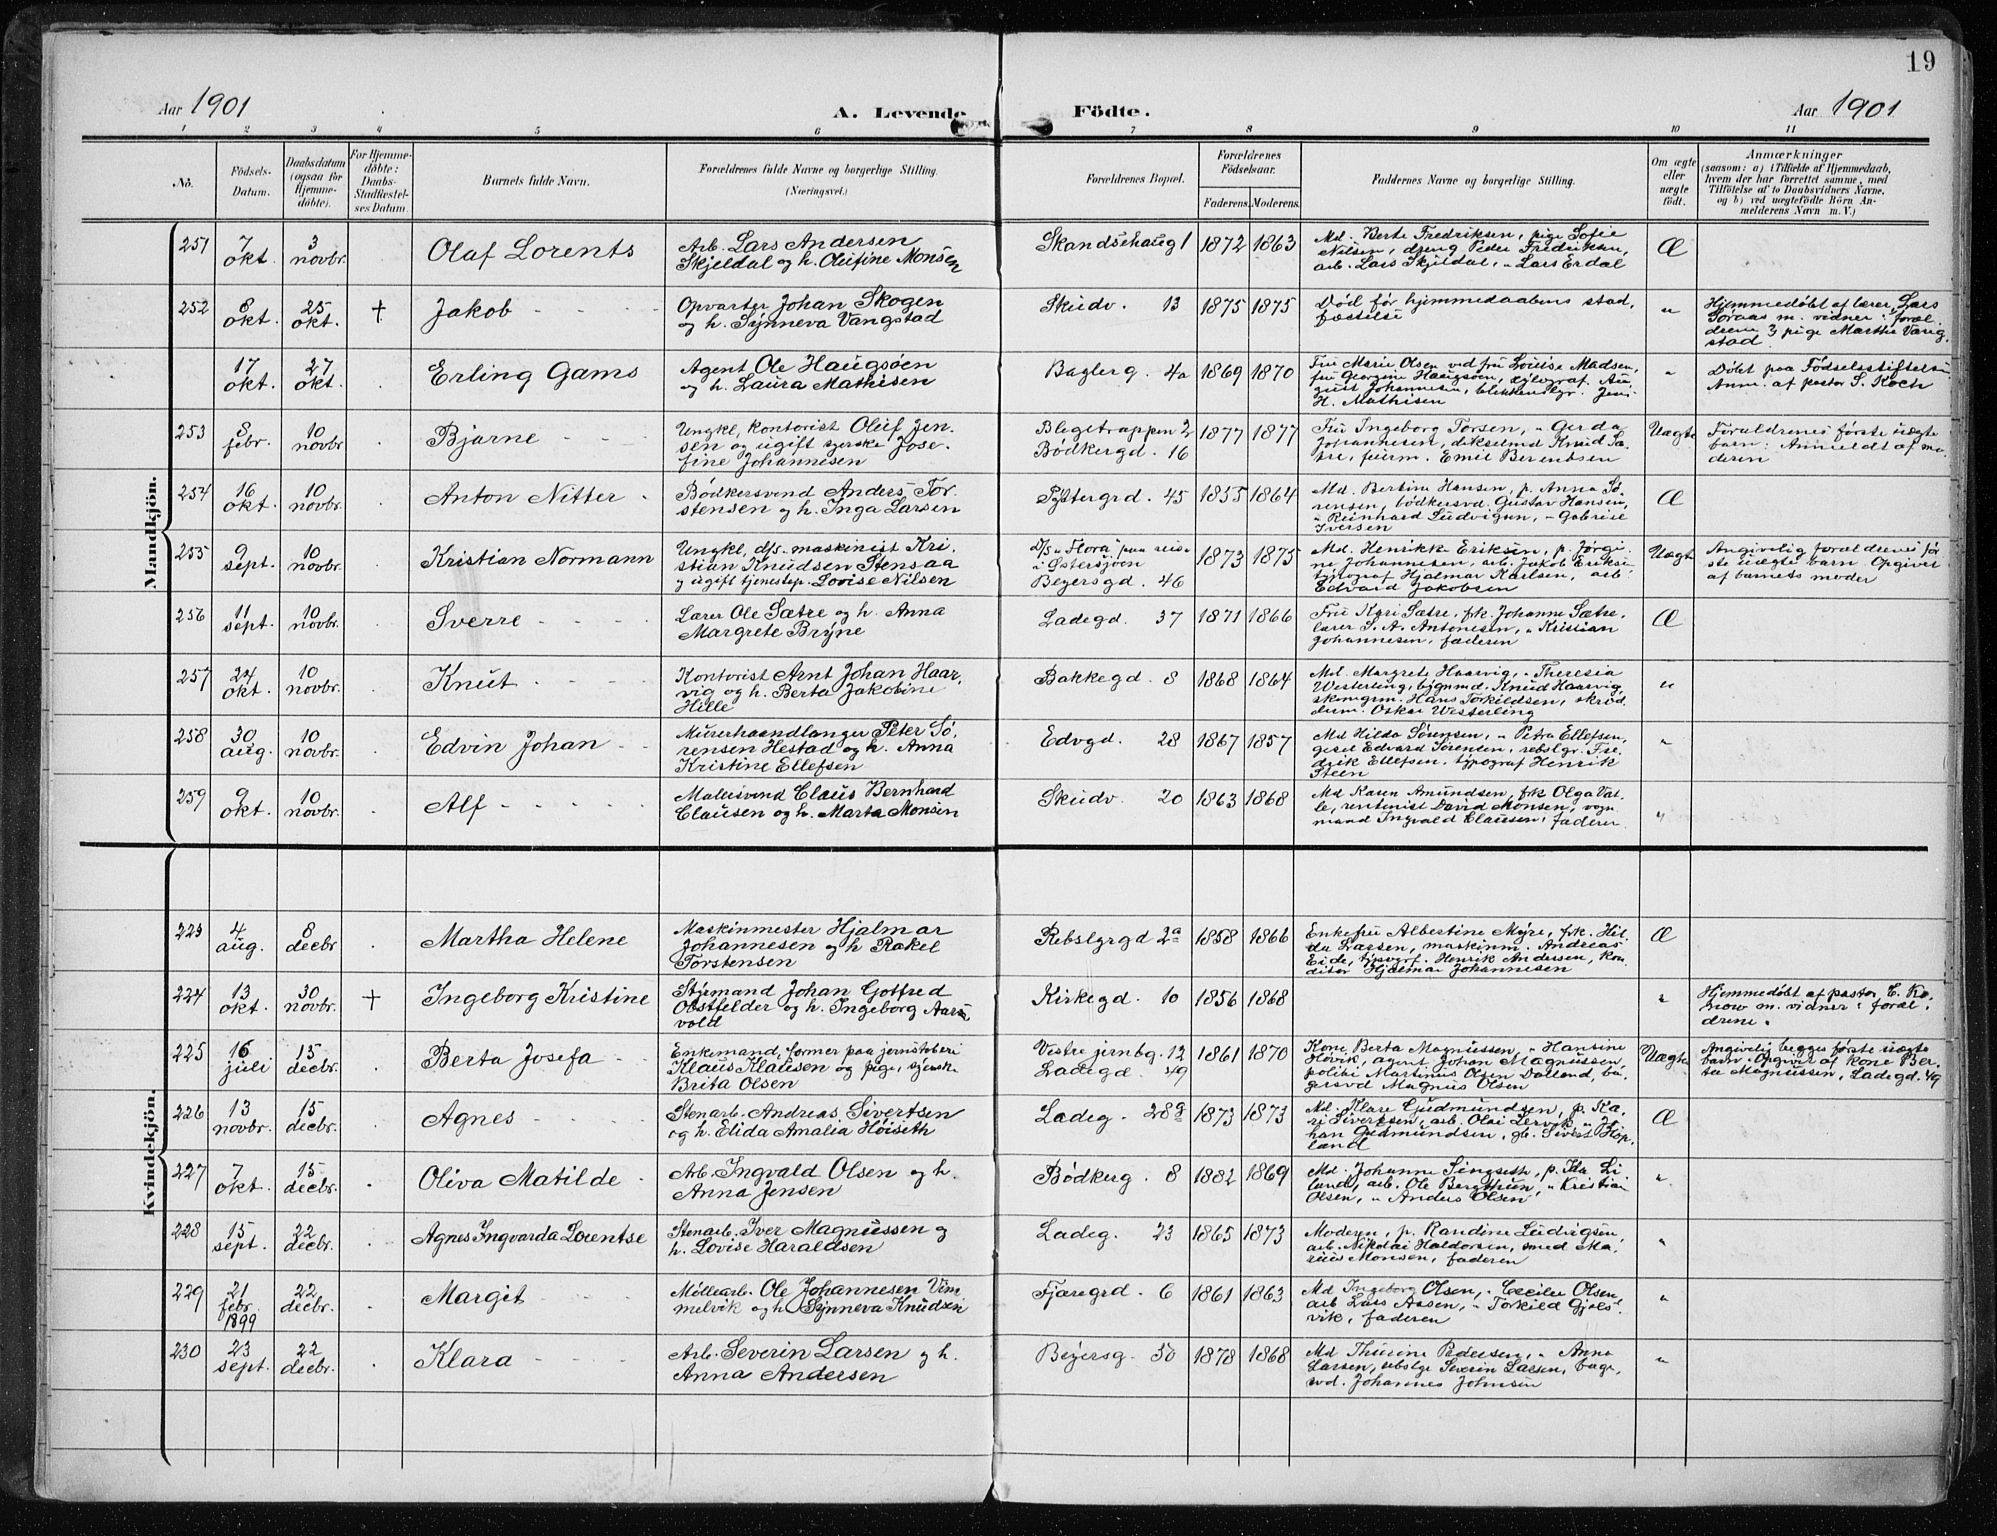 19
Aar 1901
A. Levende Födte.
Aar 1901
1 2 3 4 5 6 7 8 9 10 11
No.
Födsels-Datum.
Daabsdatum (ogsaa for Hjemme-döbte).
For Hjemme-döbte: Daabs-Stadfæstel-ses Datum
Barnets fulde Navn.
Forældrenes fulde Navne og borgerlige Stilling.
(Næringsvei.)
Forældrenes Bopæl.
Forældrenes Födselsaar.
Faderens. Moderens.
Faddernes Navne og borgerlige Stilling.
Om ægte eller uægte födt.
Anmærkninger
(saasom: a) i Tilfælde af Hjemmedaab,
hvem der har forrettet samme, med
Tilföielse af to Daabsvidners Navne,
og b) ved uægtefödte Börn An-
melderens Navn m. V.)
Mandkjön.
251 7 okt. 3 novbr. Olaf Lorents
Arb. Lars Andersen
Skjeldal og h. Olufine Monsen
Skandsehaug 1 1872 1863
Md. Berte Fredriksen, pige Sofie
Nilsen, dreng Peder Fredriksen,
arb. Lars Skjeldal, " Lars Erdal
Æ
252 8 okt. 25 okt. † Jakob
Opvarter Johan Skogen
og h. Synneva Vangstad
Skudv. 13 1875 1875
Død før hjemmedaabens stad,
fæstelse
"
Hjemmedøbt af lærer Lars
Søraas m. vidner: foræl
drene & pige Marthe Vang
stad.
17 okt. 27 okt. Erling Gams
Agent Ole Haugsøen
og h. Laura Mathisen
Baglerg. 4a 1869 1870
Fru Marie Olsen ved fru Louise Madsen,
fru Georgine Haugsøen, xylograf Au,
gust Johannesen, blikkenslgr. Jens
H. Mathisen
"
Døbt paa Fødselsstiftelsen
Anm. af pastor S. Koch
253 8 febr. 10 novbr. Bjarne
Ungkl, kontorist Oluf Jen-
sen og ugift syerske Jose-
fine Johannesen
Blegetrappen 2
Bödkergd. 16
1877 1877
Fru Ingeborg Torsen, " Gerda
Johannesen, dekselsmd Knud Sæ-
tre, feierm. Emil Berentsen
Uægte
Forældrenes første uægte
barn. Anmeldt af mo
deren
254 16 okt. 10 novbr. Anton Nitter
Bödkersvend Anders Tor-
stensen og h. Inga Larsen
Pytergrd. 45 1855 1864
Md. Bertine Hansen, p. Anna Sö-
rensen, bödkersvd. Gustav Hansen,
" Reinhard Ludvigsen, " Gabriel
Iversen
Æ
255 9 sept. 10 novbr. Kristian Normann
Ungkl, d/s. maskinist Kri-
stian Knudsen Stensaa
og ugift tjenestep. Lovise Nilsen
D/S "Flora" paa reise
i Östersjöen
Beyersgd. 46
1873 1875
Md. Henrikke Eriksen, p. Jørgi-
ne Johannesen, arb. Jakob Eriksen
typograf Hjalmar Karlsen, arb.
Edvard Jakobsen
Uægte
Angivelig forældrenes før
ste uægte barn. Opgivet
af barnets moder
256 11 sept. 10 novbr. Sverre
Lærer Ole Sætre og h. Anna
Margrete Bryne
Ladegd. 37 1871 1866
Fru Kari Sætre, frk. Johanne Sætre,
lærer S. A. Antonesen, " Kristian
Johannesen, faderen
Æ
257 24 okt. 10 novbr. Knut
Kontorist Arnt Johan Haar-
vig og h. Berta Jakobine
Hille
Bakkegd. 8 1868 1864
Md. Margrete Haarvig, " Theresia
Westerling, bygnmd. Knud Haarvig,
skomgrm. Hans Torkildsen, skræd
derm. Oskar Westerling
"
258 30 aug. 10 novbr. Edvin Johan
Murerhaandlanger Peter Sö-
rensen Hestad og h. Anna
Kristine Ellefsen
Edvgd. 28 1867 1857
Md Hilda Sörensen, " Petra Ellefsen,
gesel Edvard Sörensen, rebslgr. Fre
drik Ellefsen, typograf Henrik
Steen
"
259 9 okt. 10 novbr. Alf
Malersvend Claus Bernhard
Clausen og h. Marta Monsen
Skudv. 20 1863 1868
Md Karen Amundsen, frk Olga Val-
le, rentenist David Monsen, vogn
mand Ingvald Clausen, faderen
"
Kvindekjön.
223 4 aug. 8 decbr Martha Helene
Maskinmester Hjalmar
Johannesen og h Rakel
Torstensen
Rebslgrgd 2a 1858 1866
Enkefru Albertine Myre, frk. Hil-
da Larsen, maskinm. Andreas
Eide, typogrf. Henrik Andersen, kon
ditor Hjalmar Johannesen
Æ
224 13 okt. 30 novbr. † Ingeborg Kristine
Styrmand Johan Gotfred
Obstfelder og h. Ingeborg Aars-
vold
Kirkegd. 10 1856 1868
"
Hjemmedøbt af pastor E. Ka-
hrow m. vidner: foræl
drene.
225 16 juli 15 decbr. Berta Josefa
Enkemand, former paa jernstøberi
Klaus Klausen og pige, syerske
Brita Olsen
Vestre jernbg. 12
Ladegd. 49
1861 1870
Kone Berta Magnussen, " Hansine
Hövik, agent Johan Magnussen,
politi Martinus Olsen Dalland, bö-
gersvd Magnus Olsen
Uægte
Angivelig begges første uægte
barn. Opgivet af kone Ber-
ta Magnussen, Ladegd. 49
226 13 novbr. 15 decbr. Agnes
Stenarb. Andreas Sivertsen
og h. Elida Amalia Höiseth
Ladeg. 28g 1873 1873
Md. Klare Gudmundsen, p. Ka-
ri Sivertsen, arb. Olai Lervik, " Jo-
han Gudmundsen, gb. Sivert Hop-
land
Æ
227 7 okt. 15 decbr. Oliva Matilde
Arb. Ingvald Olsen og h.
Anna Jensen
Bödkerg. 8 1882 1869
Md. Johanne Singseth, p. Ida Li-
land, arb. Ole Bergthun, " Kristian
Olsen, " Anders Olsen
"
228 15 sept. 22 decbr. Agnes Ingvarda Lorentse
Stenarb. Iver Magnussen og
h. Lovise Haraldsen
Ladeg. 23 1865 1873
Moderen, p. Randine Ludvigsen,
arb. Nikolai Haldorsen, smed Ma-
rius Monsen, faderen
"
229 21 febr. 1899 22 decbr. Margit
Møllearb. Ole Johannesen Vim-
melvik og h. Synneva Knudsen
Fjæregrd. 6 1861 1863
Md Ingeborg Olsen, " Cecilie Olsen,
arb Lars Aasen, " Torkild Gjels
vik, faderen
"
230 23 sept. 22 decbr. Klara
Arb. Severin Larsen og h.
Anna Andersen
Beyersg. 50 1878 1868
Md Thurine Pedersen, " Anna
Larsen, rebslgr Severin Larsen, bage-
svd. Johannes Johnsen
"